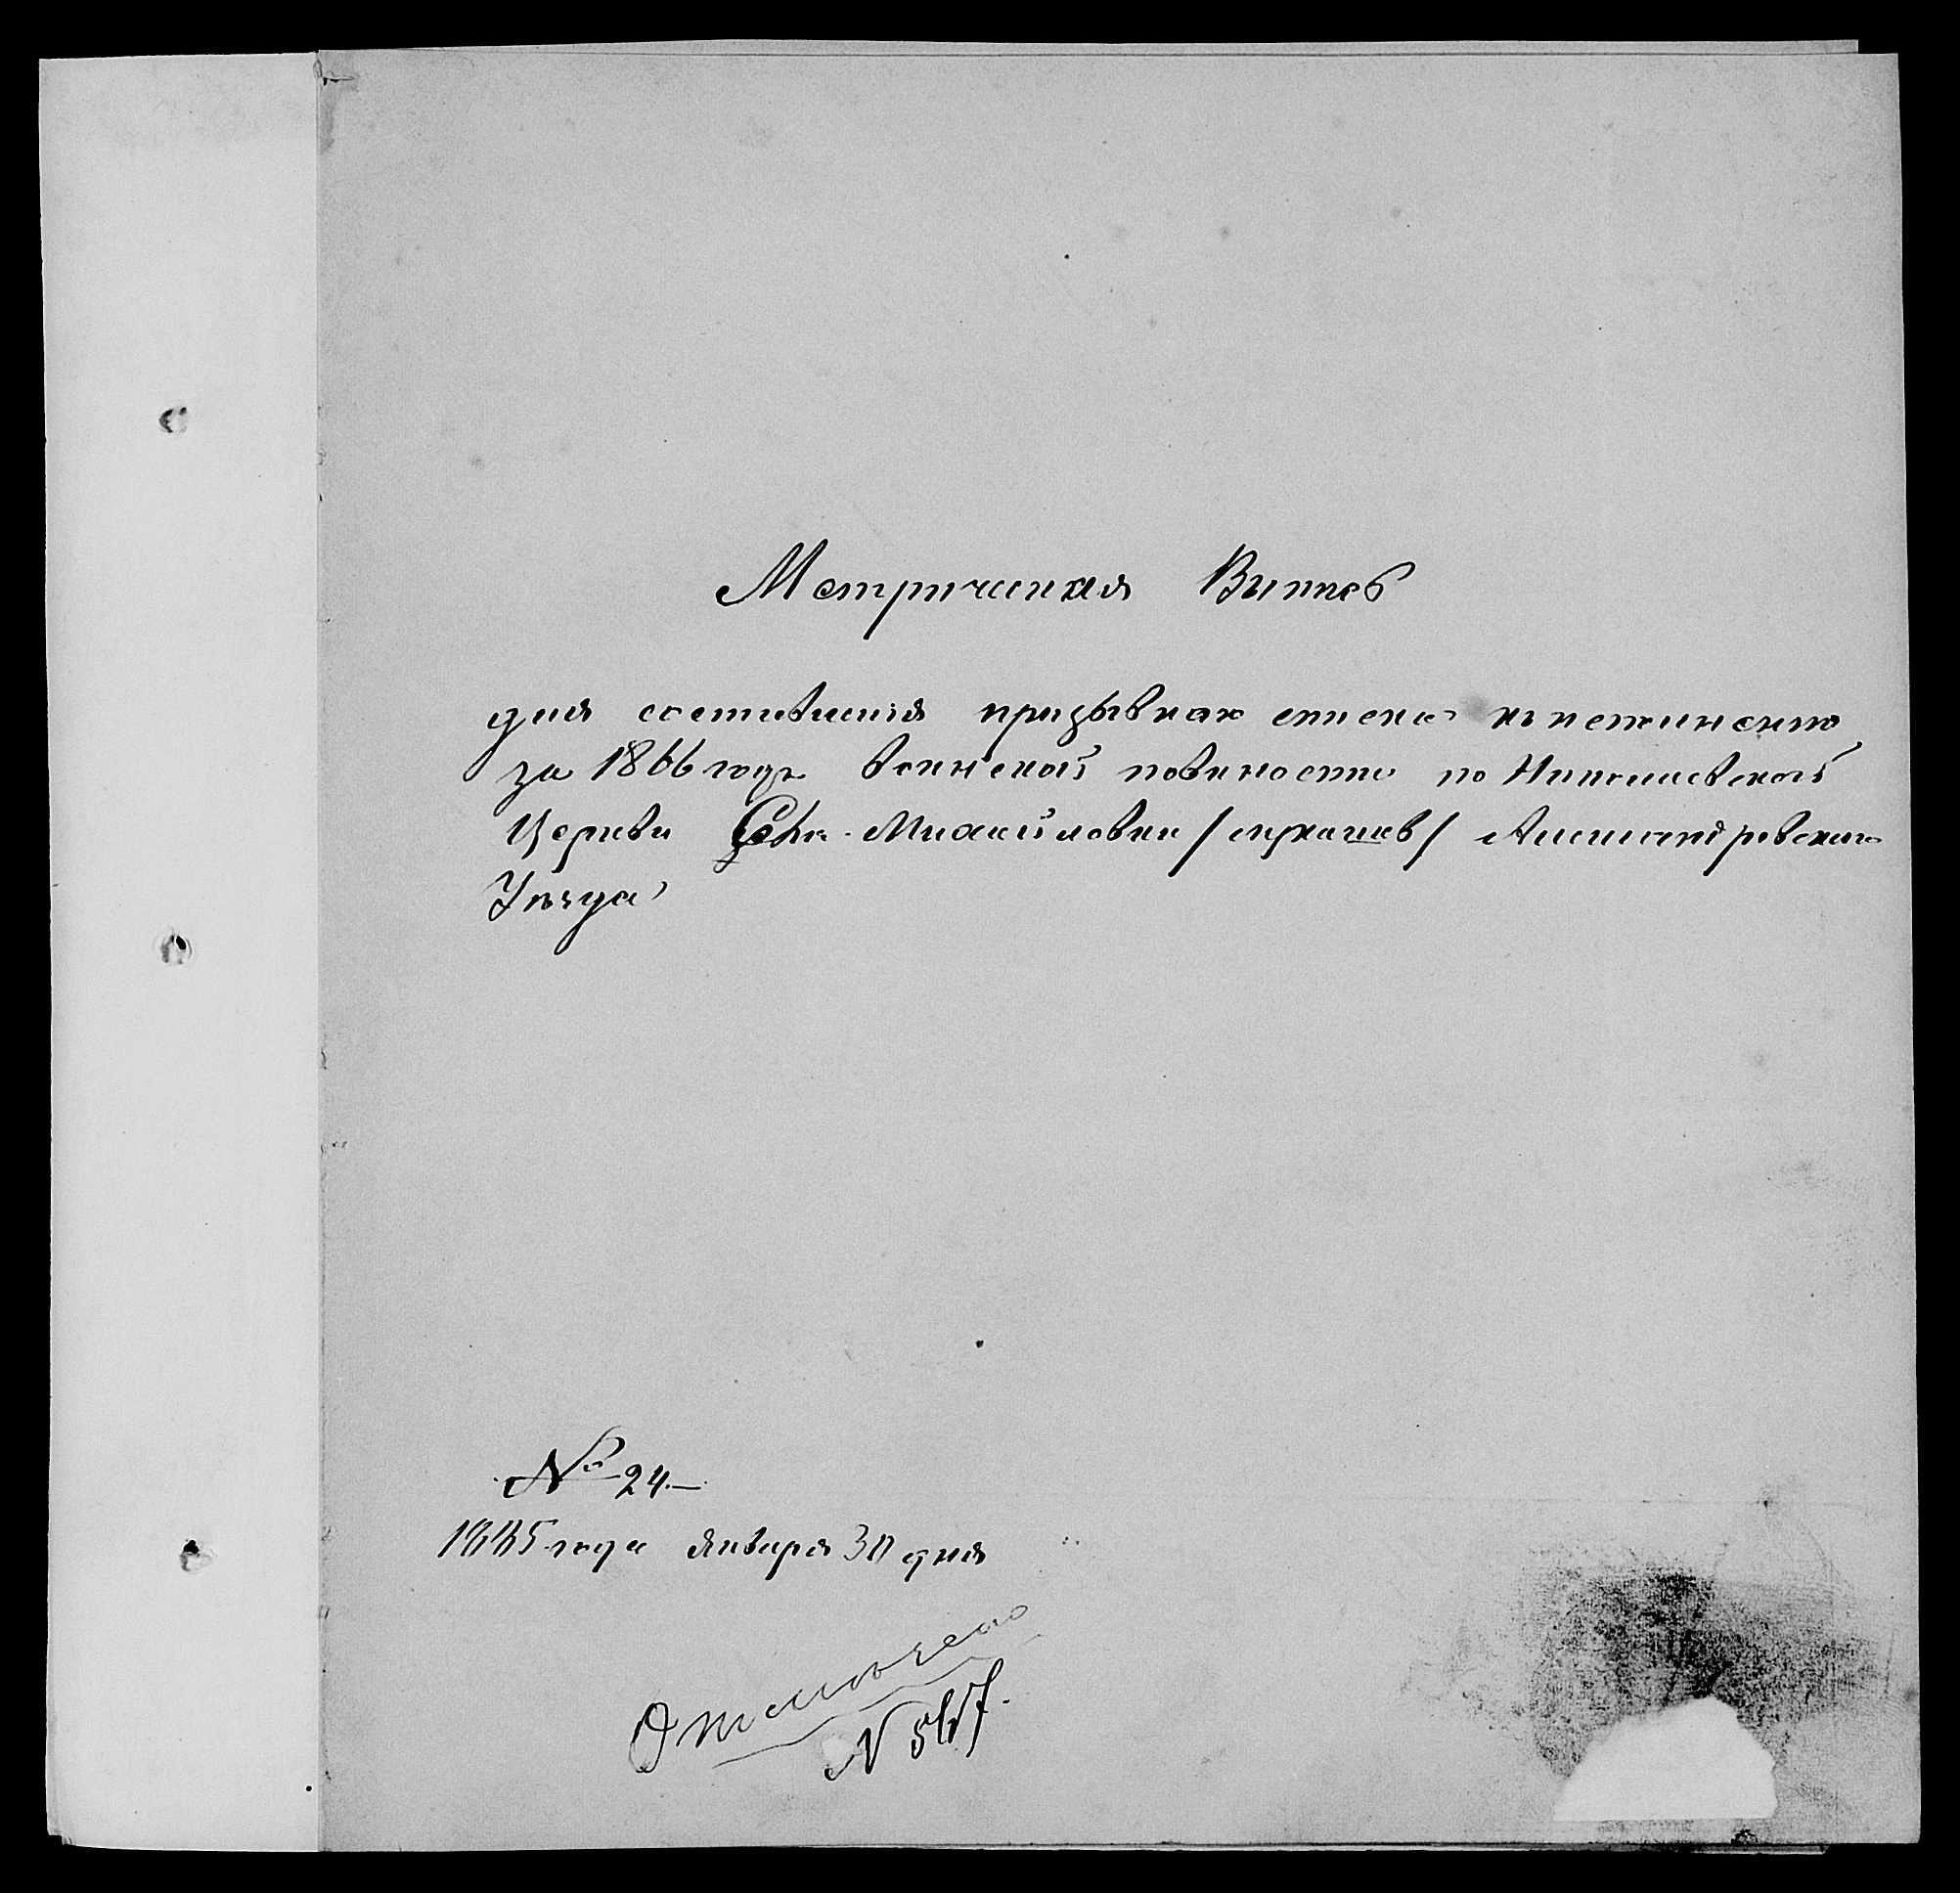 Метрическая Выпись
для составления призывнаго списка къ исполнению
за 1866 годъ воинской повиности по Николаевской
Церкви Села Михайловки / / Александровскаго
Уѣзда
№ 24.
1885 года Января 30 дня
Отмѣчено
N